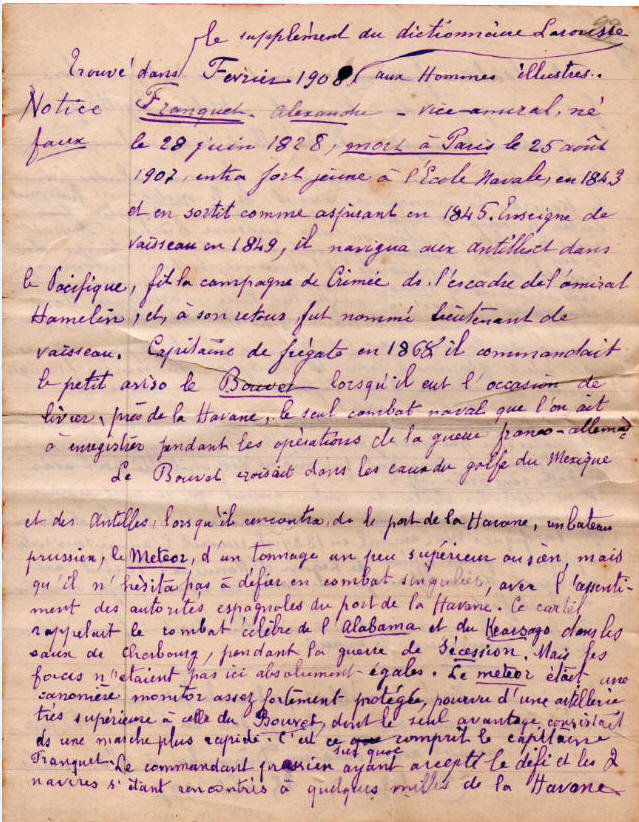 le supplément du dictionnaire Larousse
Trouvé dans Fevrier 1908 aux Hommes illustres.
Notice Franquet - Alexandre - vice-amiral, né
faux le 28 juin 1828, mort à Paris le 25 août
1907, entra fort jeune à l'École Navale, en 1843
et en sortit comme aspirant en 1845. Enseigne de
vaisseau en 1849, il navigua aux antilles et dans
le Pacifique, fit la campagne de Crimée ds. l'escadre de l'amiral
Hamelin, et, à son retour fut nommé lieutenant de
vaisseau. Capitaine de frégate en 1868 il commandait
le petit aviso le Bouvet lorsqu'il eut l'occasion de
livrer, près de la Havane, le seul combat naval que l'on ait
à enregistrer pendant les opérations de la guerre franco-allemande
Le Bouvet croisait dans les eaux du golfe du Mexique
et des Antilles, lorsqu'il rencontra, ds le port de la Havane, un bateau
prussien, le Meteor, d'un tonnage un peu supérieur au sien, mais
qu'il n'hésita pas à défier en combat singulier, avec l'assenti-
ment des autorités espagnoles du port de la Havane. Ce cartel
rappelait le combat célèbre de l'Alabama et du Kearsago dans les
eaux de Cherbourg, pendant la guerre de Sécession. Mais les
forces n'étaient pas ici absolument égales. Le meteor était une
canonière monitor assez fortement protégée, pourvu d'une artillerie
très supérieure à celle du Bouvet, dont le seul avantage consistait
ds une marche plus rapide. C'est ce que comprit le capitaine
Franquet. Le commandant prussien sur quoi ayant accepté le défi et les 2
navires s'étant rencontrés à quelques milles de la Havane